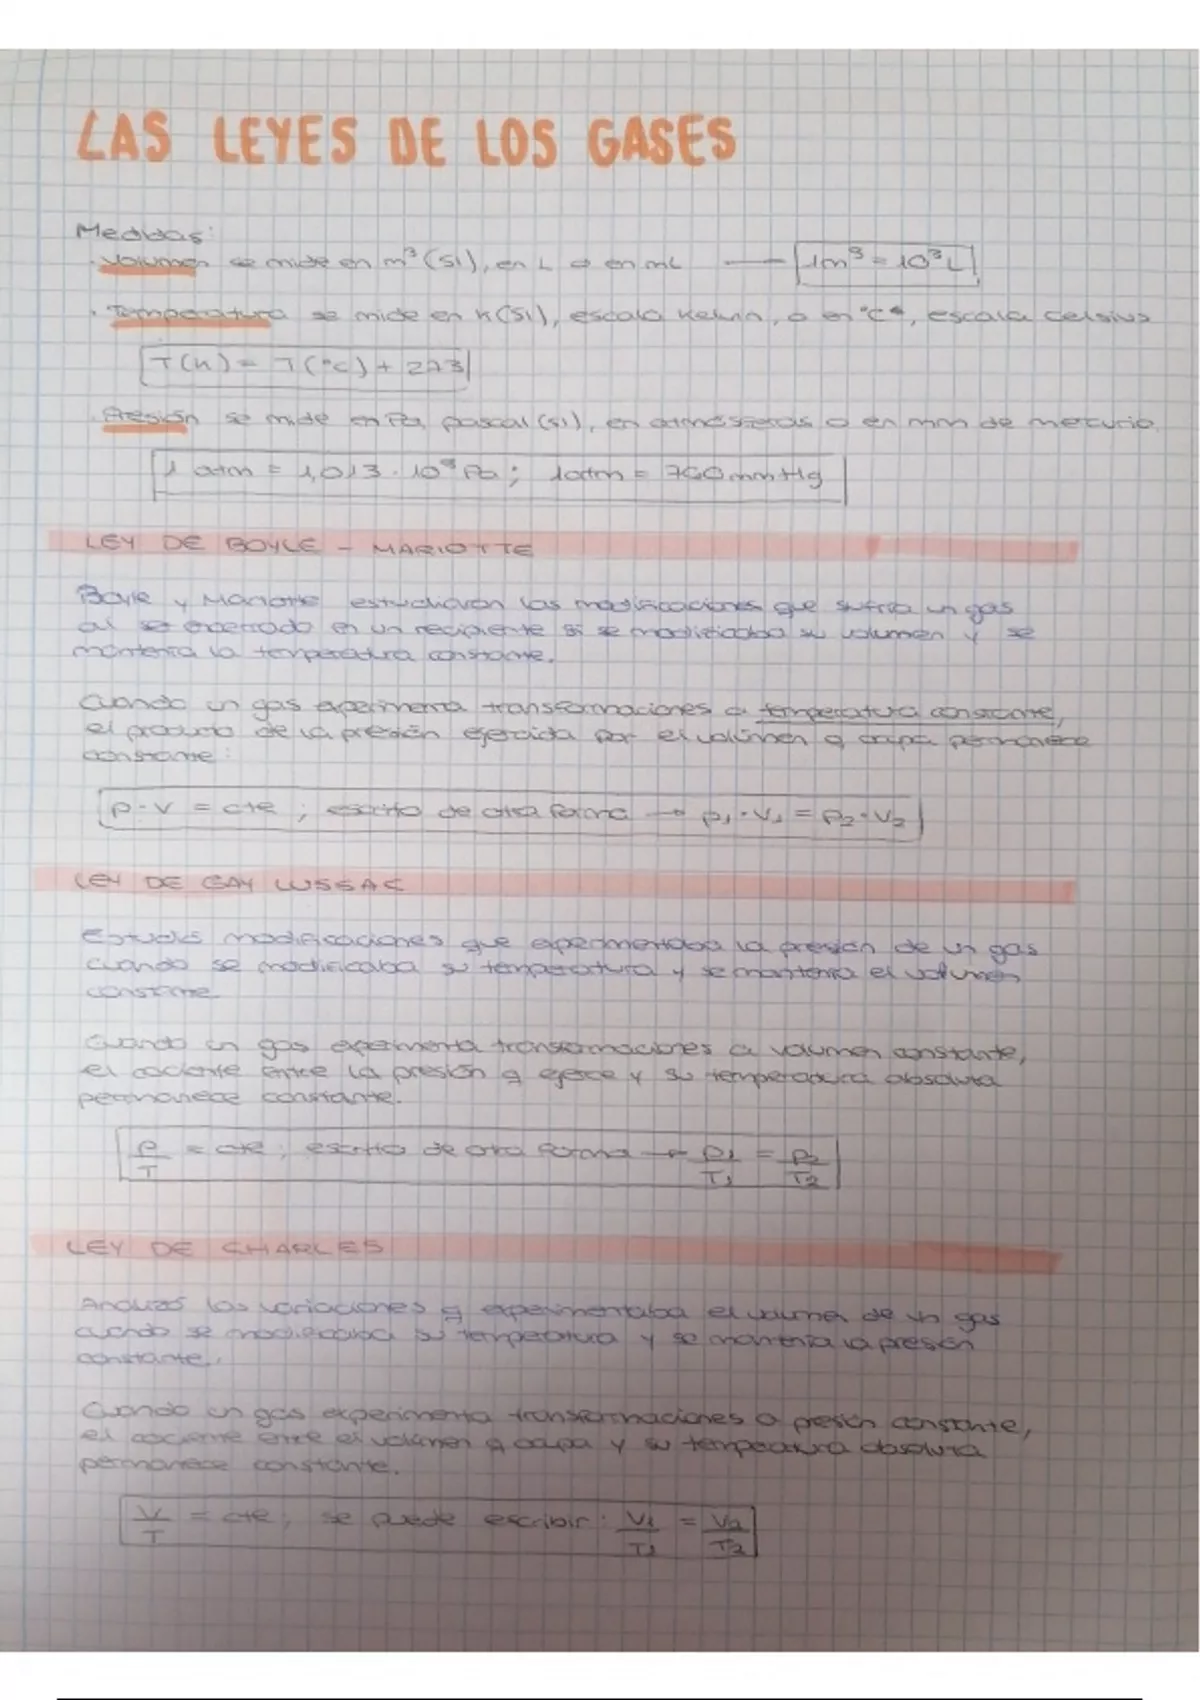 LAS LEYES DE LOS GASES
Medidas:
· Volumen se mide en m³ (SI), en L o en mL — 1m³ = 10³ L
· Temperatura se mide en K (SI), escala Kelvin, o en °C, escala Celsius
T(K) = T(°C) + 273
· Presión se mide en Pa, pascal (SI), en atmósferas o en mm de mercurio.
1 atm = 1,013 · 10⁵ Pa ; 1 atm = 760 mmHg
LEY DE BOYLE - MARIOTTE
Boyle y Mariotte estudiaron las modificaciones que sufría un gas
al ser encerrado en un recipiente si se modificaba su volumen y se
mantenía la temperatura constante.
Cuando un gas experimenta transformaciones a temperatura constante,
el producto de la presión ejercida por el volumen q ocupa permanece
constante:
p · V = cte ; escrito de otra forma → p₁ · V₁ = p₂ · V₂
LEY DE GAY LUSSAC
Estudió modificaciones que experimentaba la presión de un gas
cuando se modificaba su temperatura y se mantenía el volumen
constante
Cuando un gas experimenta transformaciones a volumen constante,
el cociente entre la presión q ejerce y su temperatura absoluta
permanece constante.
p/T = cte ; escrito de otra forma → p₁/T₁ = p₂/T₂
LEY DE CHARLES
Analizó las variaciones q experimentaba el volumen de un gas
cuando se modificaba su temperatura y se mantenía la presión
constante.
Cuando un gas experimenta transformaciones a presión constante,
el cociente entre el volumen q ocupa y su temperatura absoluta
permanece constante.
V/T = cte ; se puede escribir : V₁/T₁ = V₂/T₂